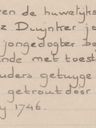 ren de huwelyks
z Duynker jo
jongedogter ba
nde met toest
uders getuyge
getrouwt door
y 1746.